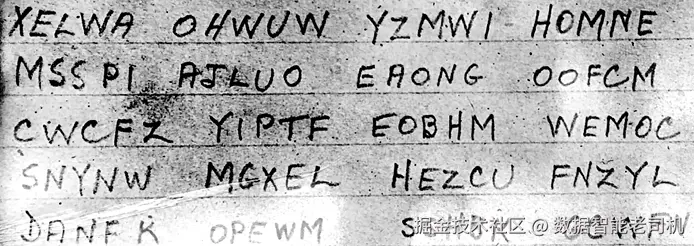 XELWA OHWUW YZMWI HOMNE
MSSPI AJLUO EAONG OOFCM
CWCFZ YIPTF EOBHM WEMOC
SNYNW MGXEL HEZCU FNZYL
DANFK OPEWM
掘金技术社区 @ 数据智能老司机